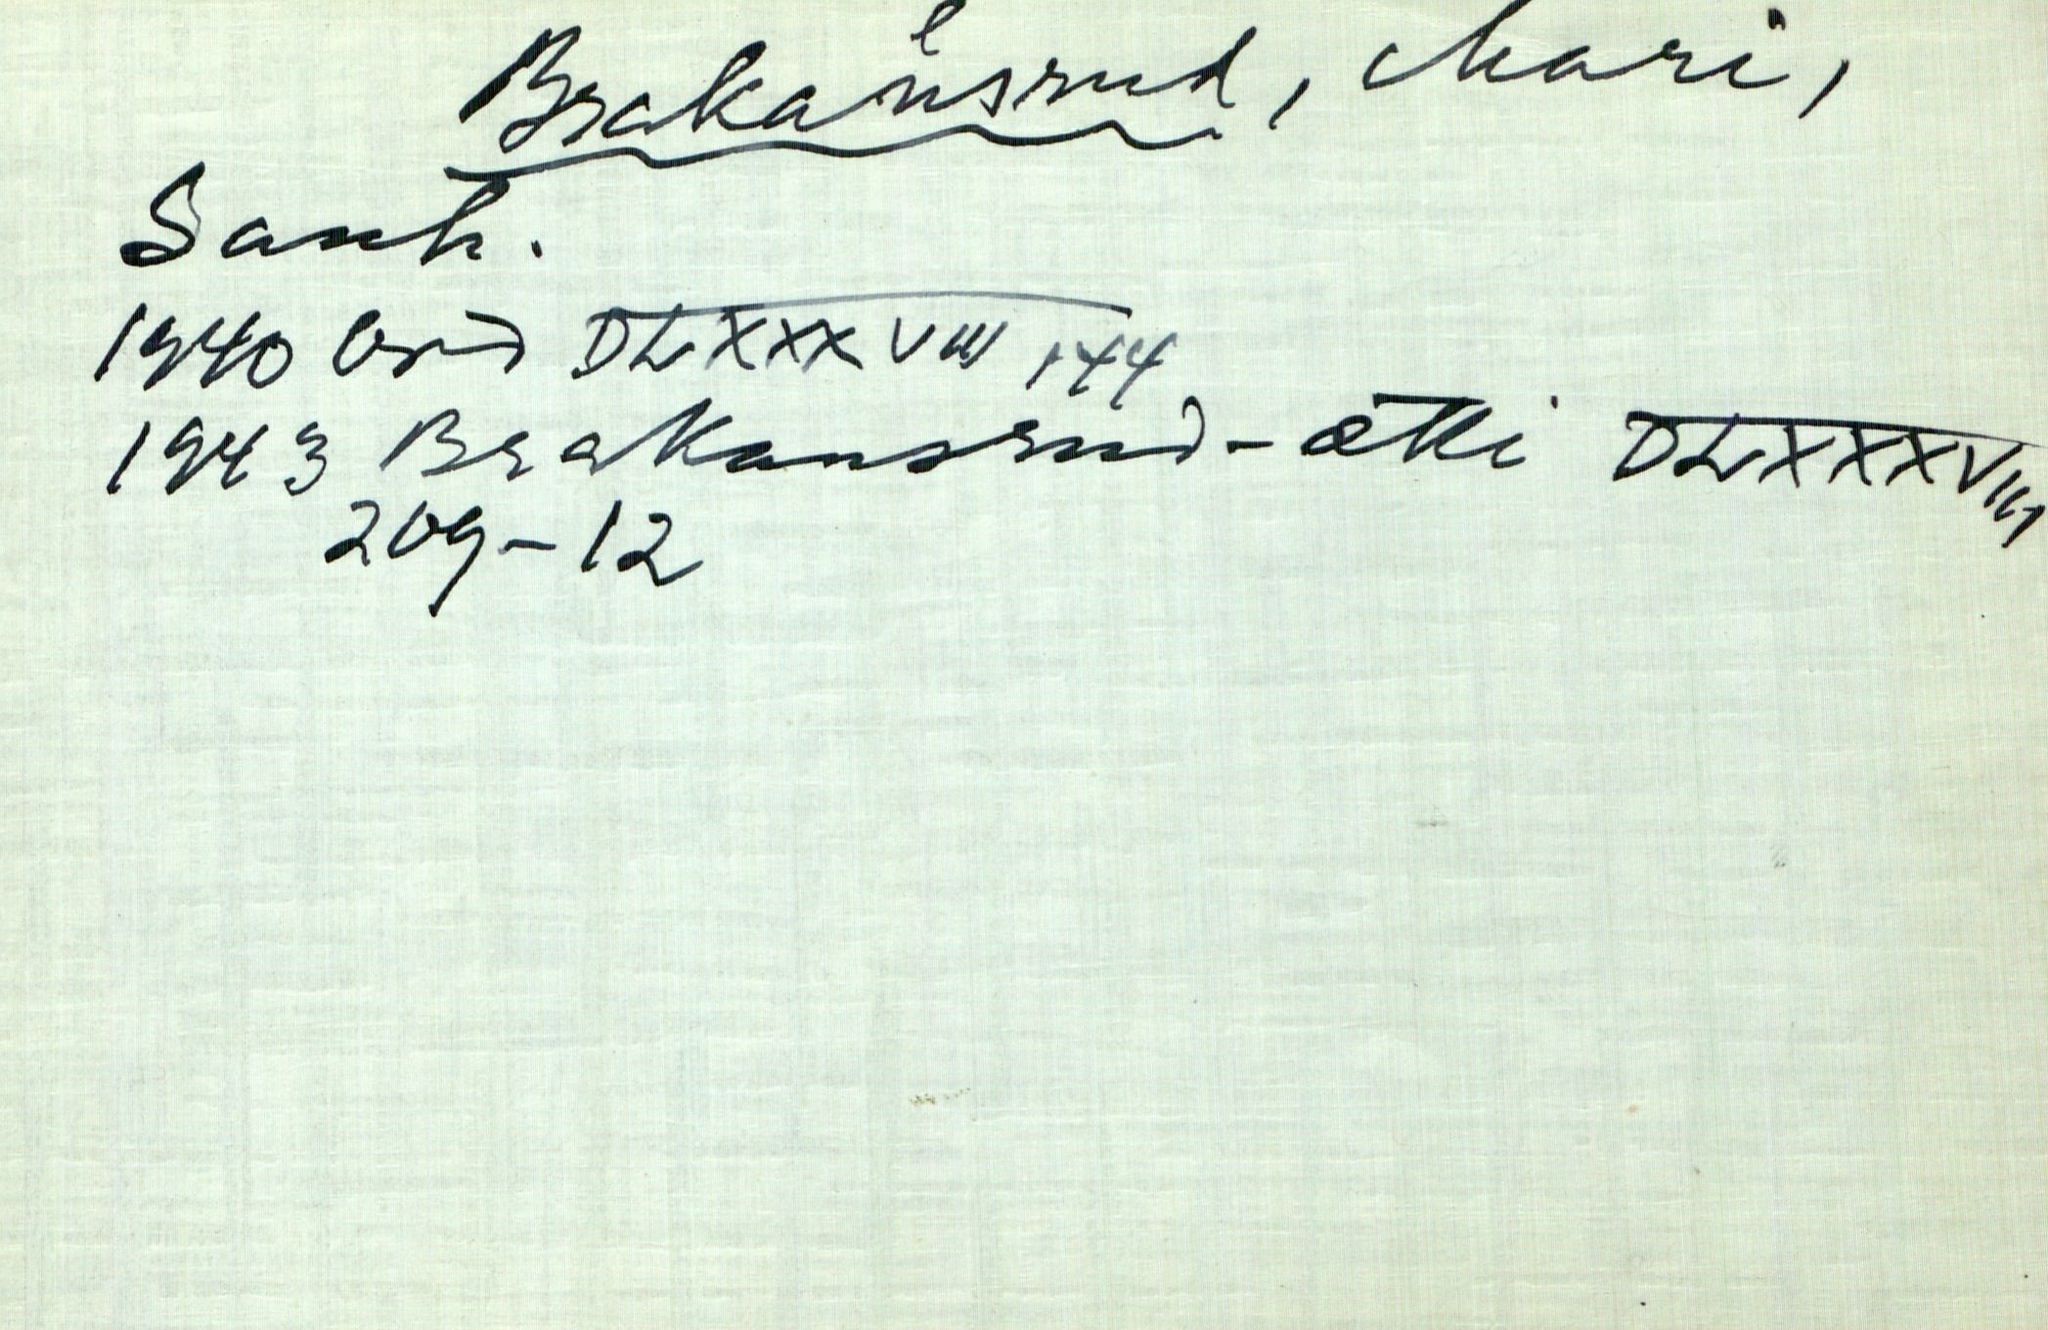 Brakånsrud, Mari,
Samh.
1940 Ord DLXXXVIII 144
1943 Brakansrud-ætti DLXXXVIII
209-12